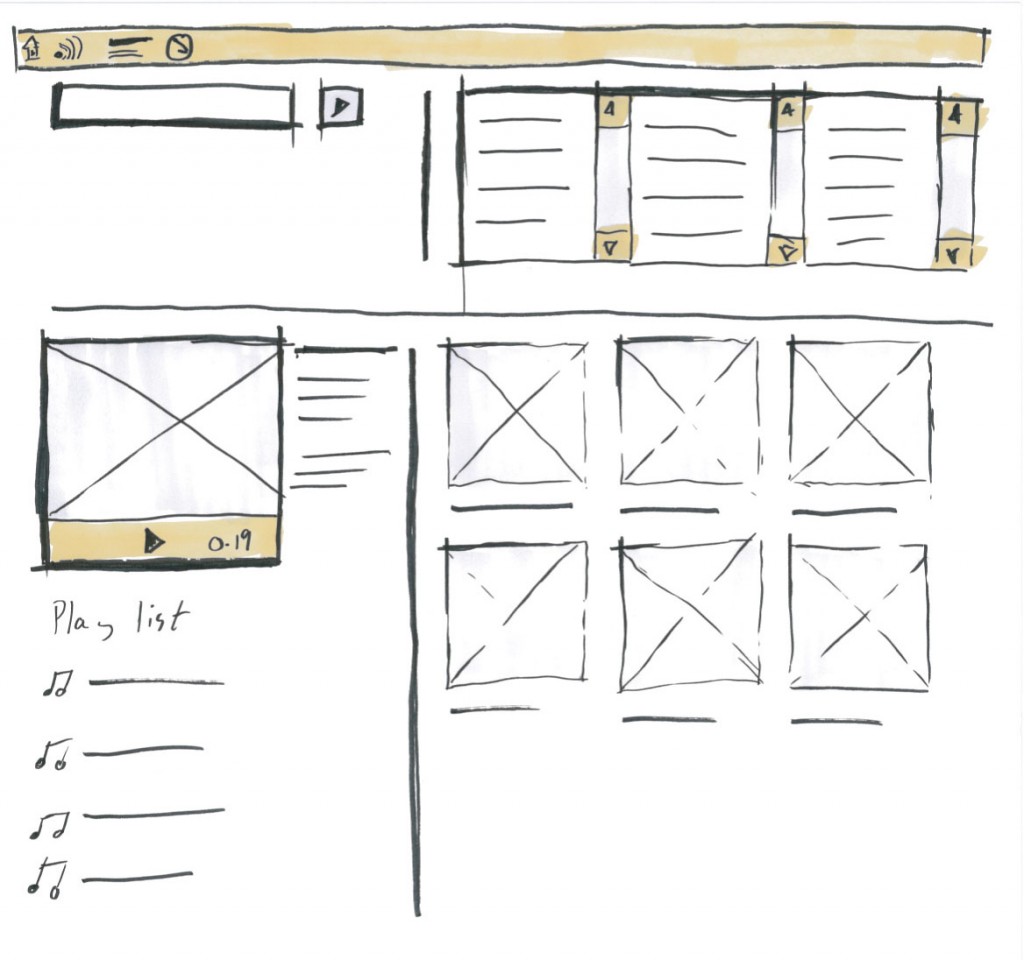 0.19
Play list